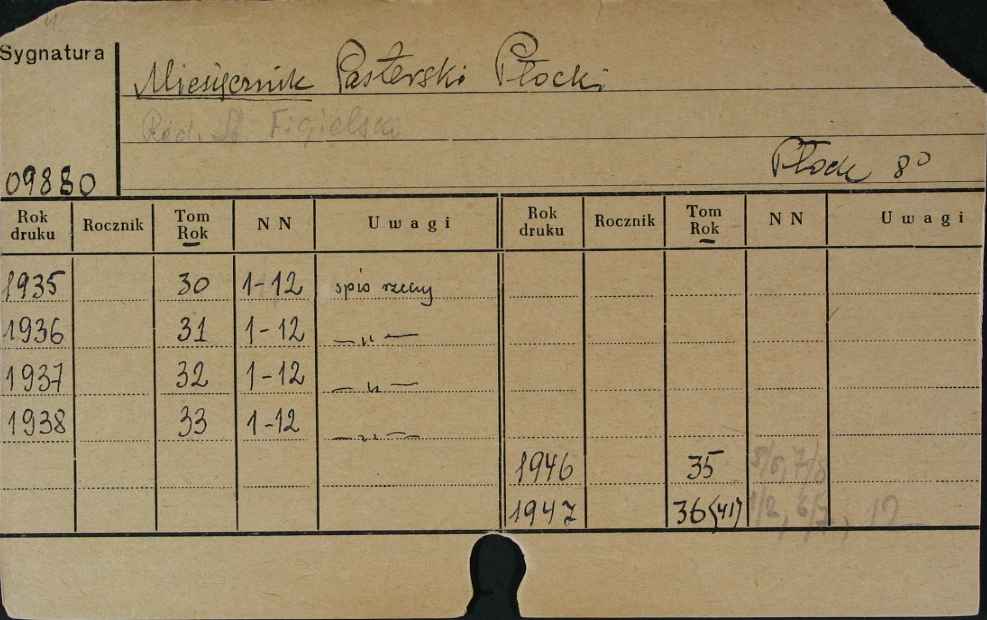 Sygnatura
Miesięcznik Pasterski Płocki
Red. St. Figielski
Płock 8°
09880
Rok druku Rocznik Tom Rok NN Uwagi Rok druku Rocznik Tom Rok NN Uwagi
1935 30 1-12 spis rzeczy
1936 31 1-12 —„—
1937 32 1-12 —„—
1938 33 1-12 —„—
1946 35 5/6, 7/8
1947 36(41) 1/2,